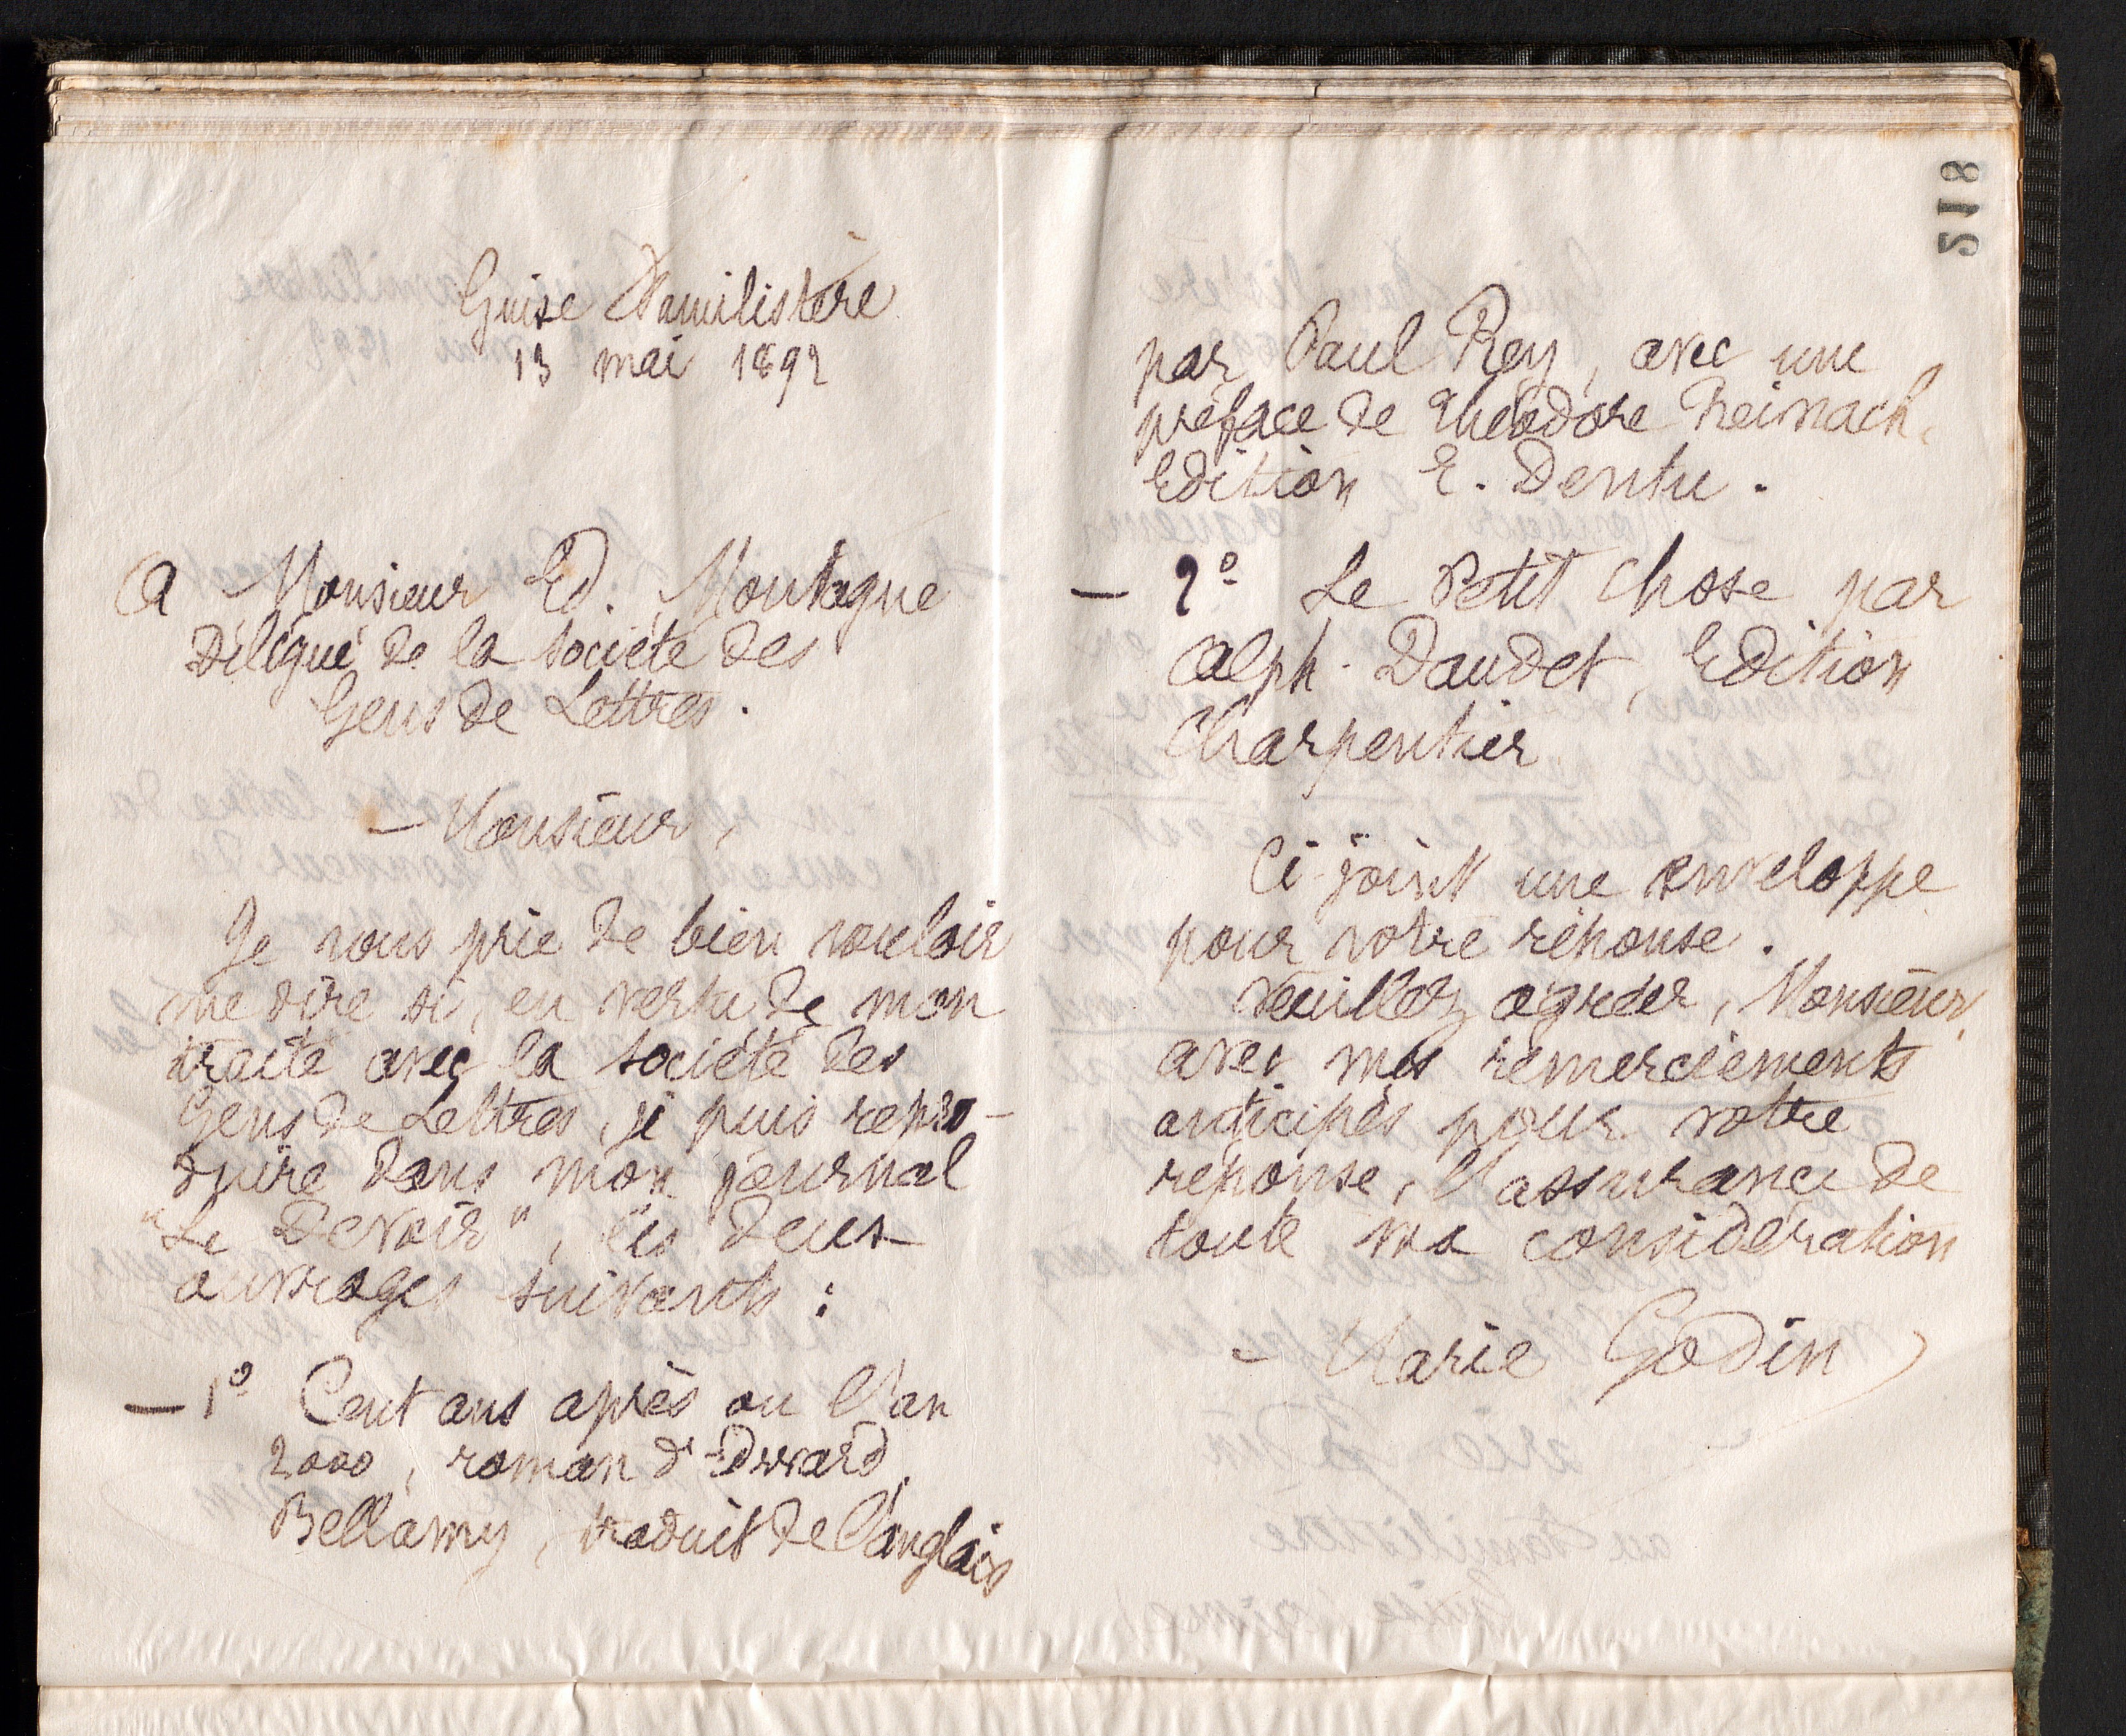 Guise Familistère
13 mai 1892
A Monsieur Ed. Montagne
Délégué de la Société des
Gens de Lettres.
Monsieur,
Je vous prie de bien vouloir
me dire si, en vertu de mon
traité avec la Société des
Gens de Lettres, je puis repro-
duire dans mon journal
"Le Devoir", les deux
ouvrages suivants :
— 1° Cent ans après ou l'an
2000, roman d'Edward
Bellamy, traduit de l'anglais
518
par Paul Rey, avec une
préface de Théodore Reinach,
Edition E. Dentu.
— 2° Le Petit Chose par
Alph. Daudet, Edition
Charpentier
Ci-joint une enveloppe
pour votre réponse.
Veuillez agréer, Monsieur,
avec mes remerciements
anticipés pour votre
réponse, l'assurance de
toute ma considération
Marie Godin